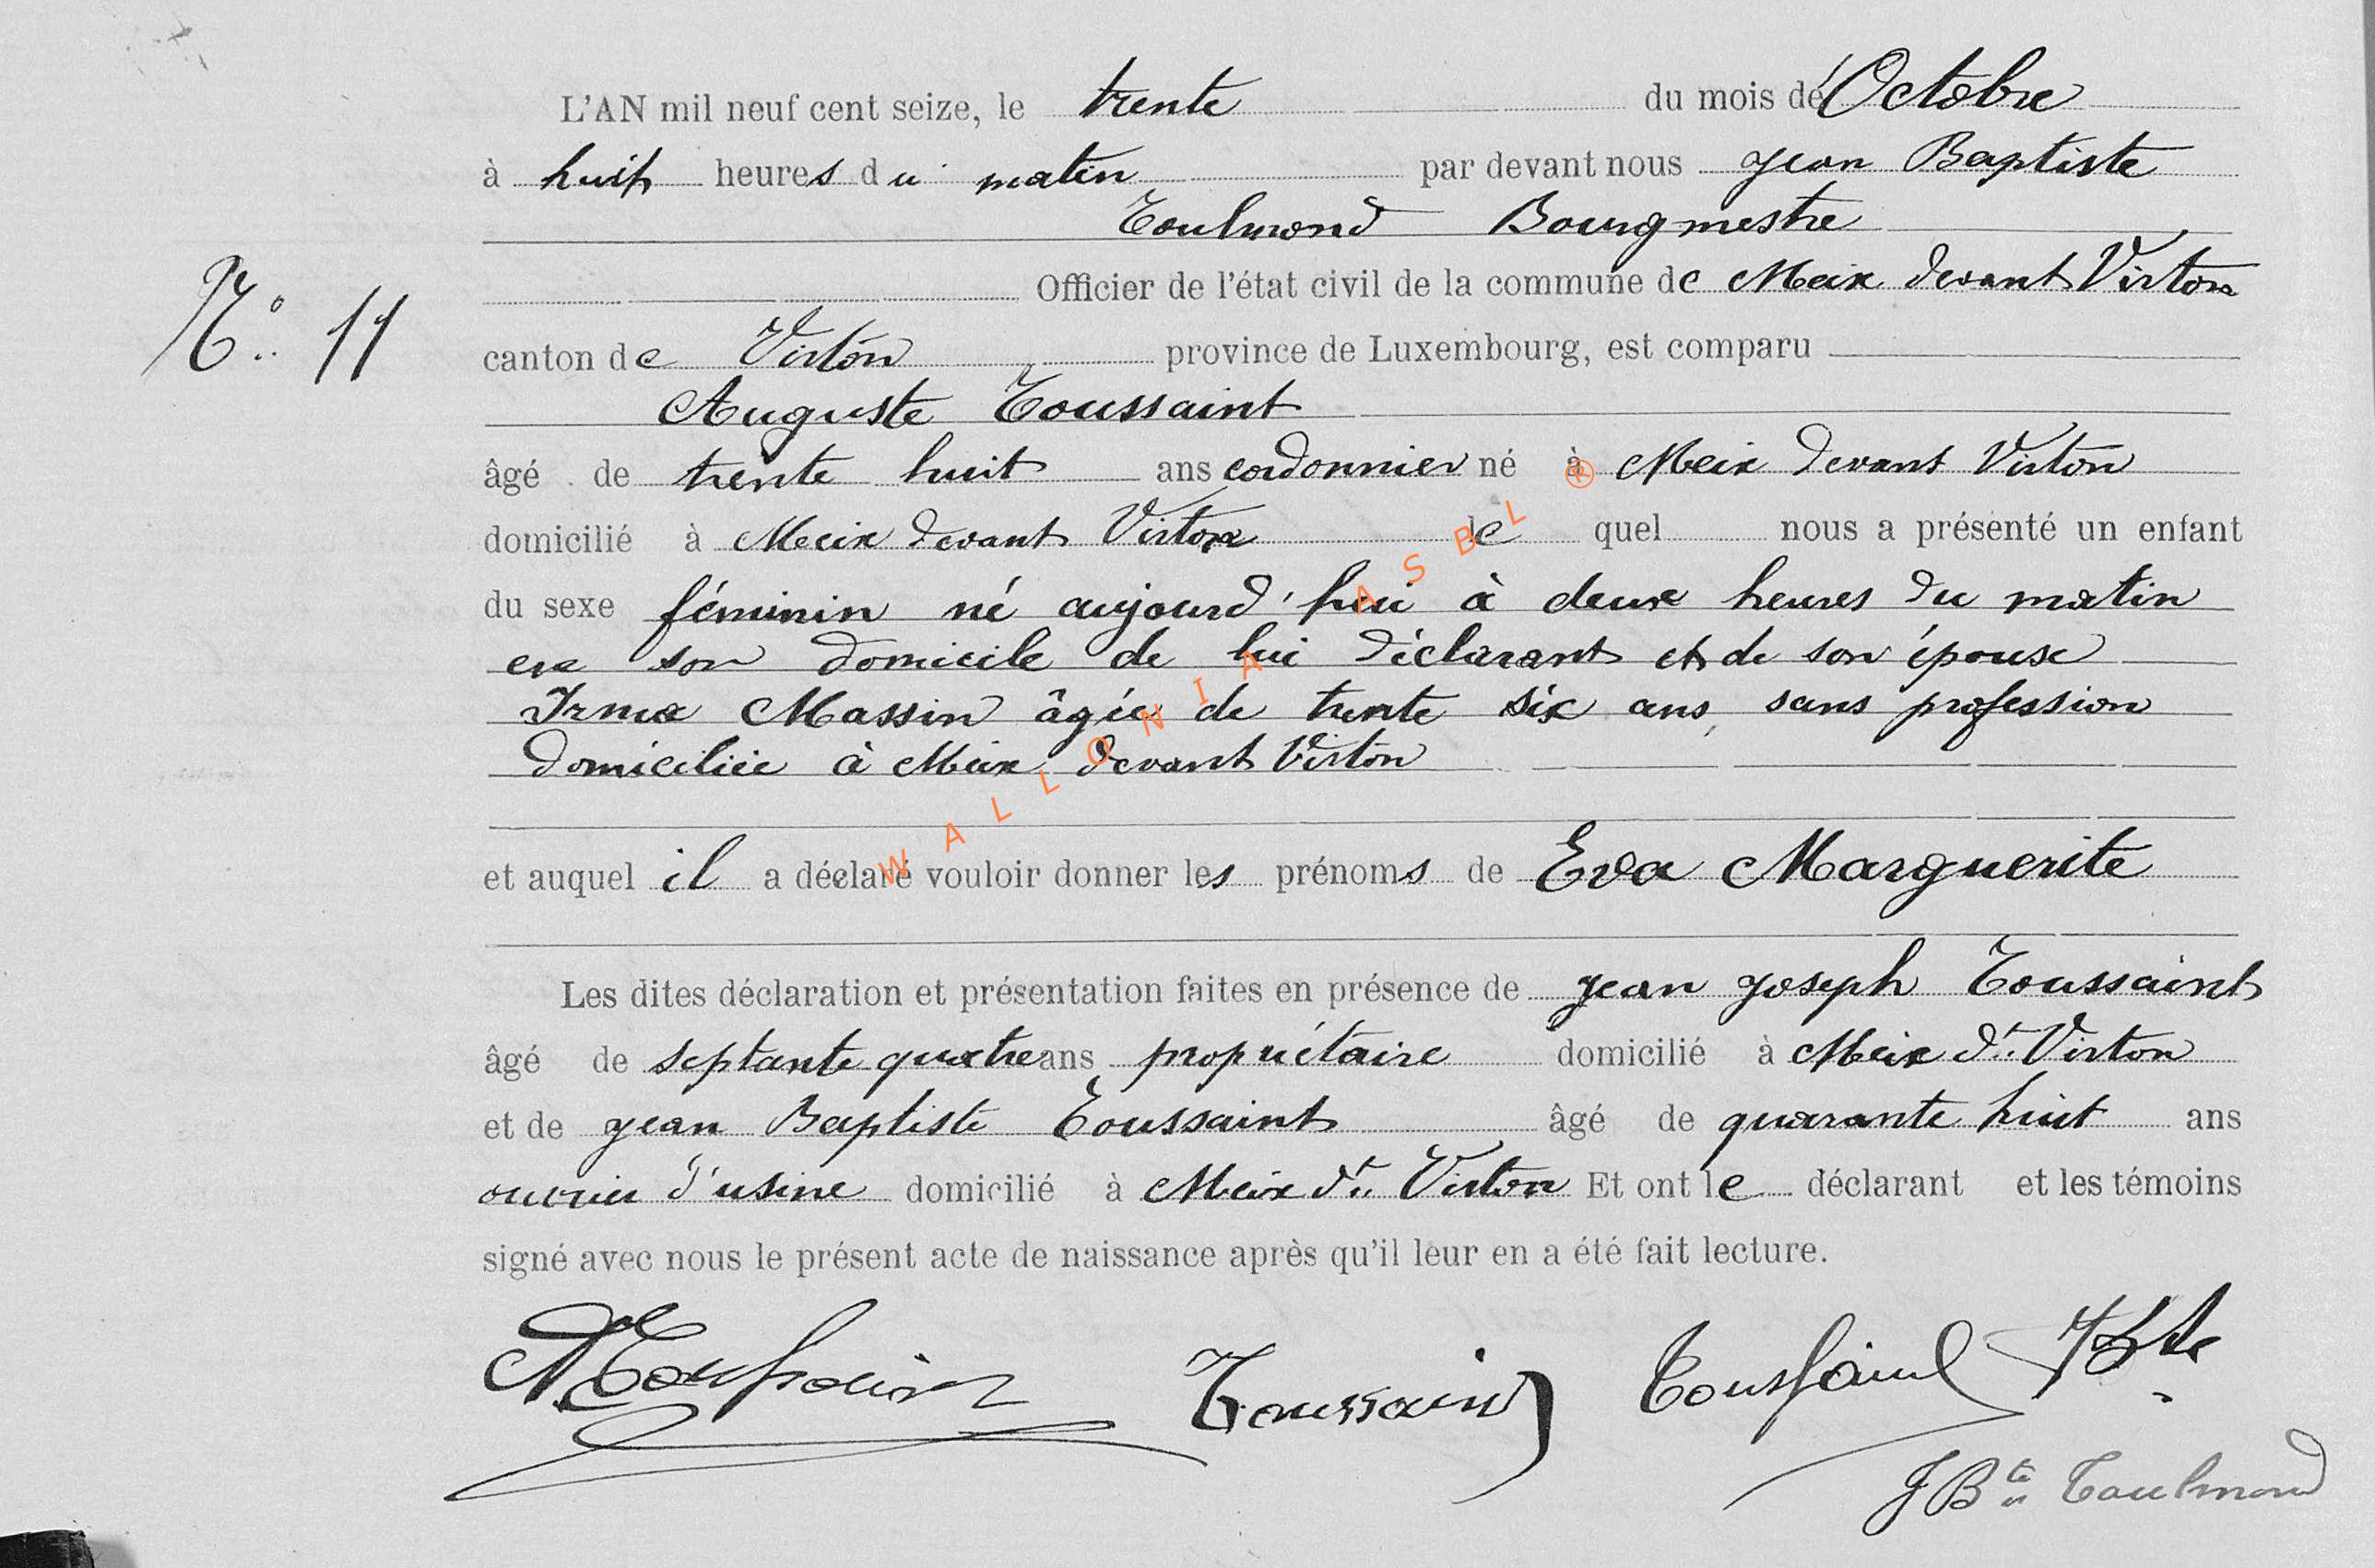 L'AN mil neuf cent seize, le trente du mois de Octobre
à huit heures du matin par devant nous Jean Baptiste
Toulmond Bourgmestre
Officier de l'état civil de la commune de Meix devant Virton
N° 11
canton de Virton province de Luxembourg, est comparu
Auguste Toussaint
âgé de trente huit ans cordonnier né à Meix devant Virton
domicilié à Meix devant Virton lequel nous a présenté un enfant
du sexe féminin né aujourd'hui à deux heures du matin
en son domicile de lui déclarant et de son épouse
Irma Massin âgée de trente six ans, sans profession
domiciliée à Meix devant Virton
et auquel il a déclaré vouloir donner les prénoms de Eva Marguerite
Les dites déclaration et présentation faites en présence de Jean Joseph Toussaint
âgé de septante quatre ans propriétaire domicilié à Meix dt Virton
et de Jean Baptiste Toussaint âgé de quarante huit ans
ouvrier d'usine domicilié à Meix dt Virton Et ont le déclarant et les témoins
signé avec nous le présent acte de naissance après qu'il leur en a été fait lecture.
A Toussaint Toussaint Toussaint JBte
J Bte Toulmond
WALLONIA ASBL ®